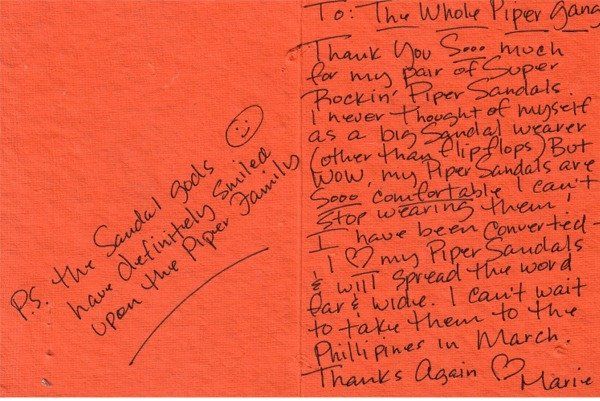 To: The Whole Piper gang
Thank You Sooo much
for my pair of Super
Rockin' Piper Sandals.
I never thought of myself
as a big Sandal wearer
(other than flipflops) But
wow, my Piper Sandals are
Sooo comfortable I can't
stop wearing them!
I have been converted-
I ♡ my Piper Sandals
& will spread the word
far & wide. I can't wait
to take them to the
Phillipines in March.
Thanks Again ♡ Marie
P.S. the Sandal gods
have definitely smiled
upon the Piper Family